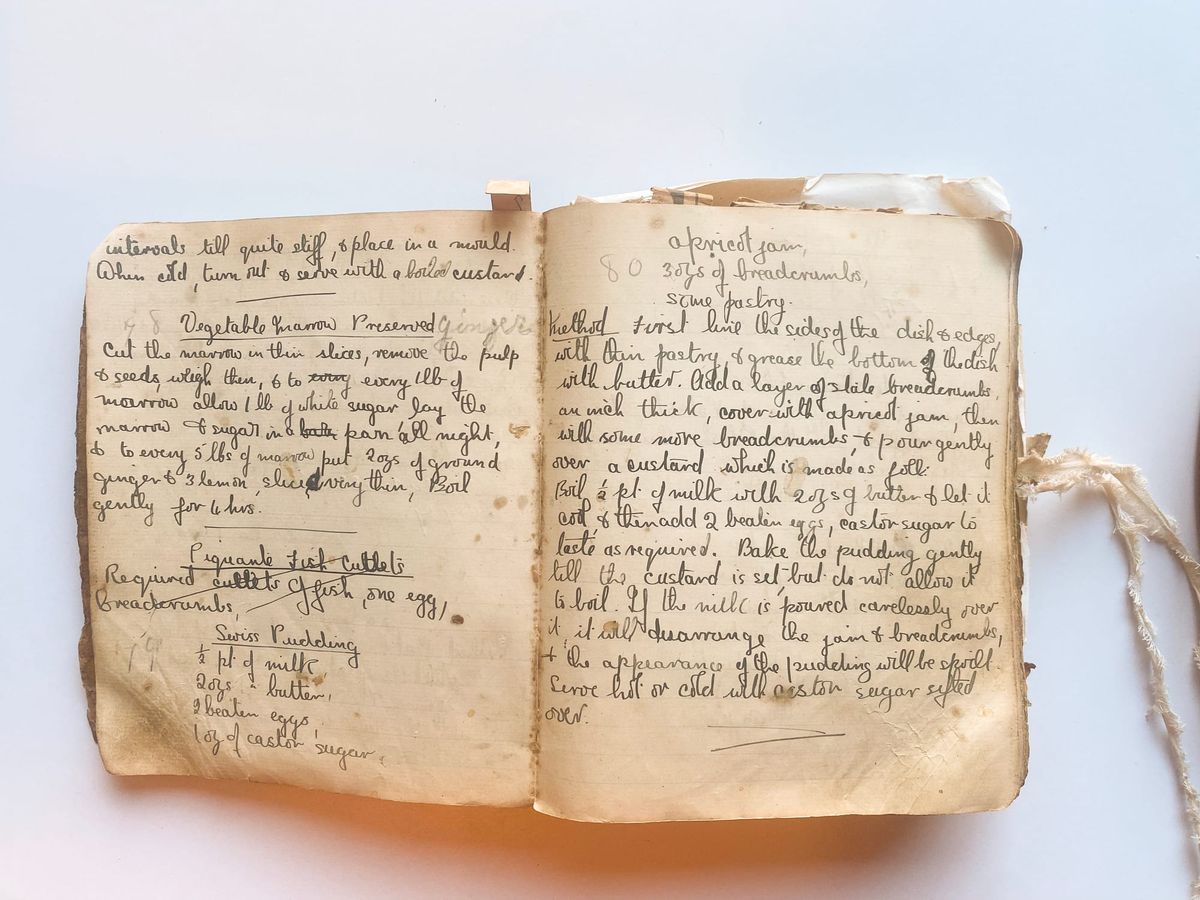 intervals till quite stiff, & place in a mould.
When cold, turn out & serve with a boiled custard.
78 Vegetable Marrow Preserved ginger
Cut the marrow in thin slices, remove the pulp
& seeds, weigh then, & to every every 1 lb of
marrow allow 1 lb of white sugar lay the
marrow & sugar in a bath pan all night,
& to every 5 lbs of marrow put 2ozs of ground
ginger & 3 lemon, sliced very thin, Boil
gently for 4 hrs.
Piquante Fish Cutlets
Required cutlets of fish, one egg,
breadcrumbs,
79 Swiss Pudding
½ pt of milk,
2ozs " butter,
2 beaten eggs,
1 oz of castor sugar,
apricot jam,
80 3ozs of breadcrumbs,
some pastry.
Method First line the sides of the dish & edges,
with thin pastry & grease the bottom of the dish
with butter. Add a layer of stale breadcrumbs,
an inch thick, cover with apricot jam, then
with some more breadcrumbs, & pour gently
over a custard which is made as foll:
Boil ½ pt. of milk with 2ozs of butter & let it
cool, & then add 2 beaten eggs, castor sugar to
taste as required. Bake the pudding gently
till the custard is set, but do not allow it
to boil. If the milk is poured carelessly over
it, it will disarrange the jam & breadcrumbs,
+ the appearance of the pudding will be spoilt.
Serve hot or cold with castor sugar sifted
over.